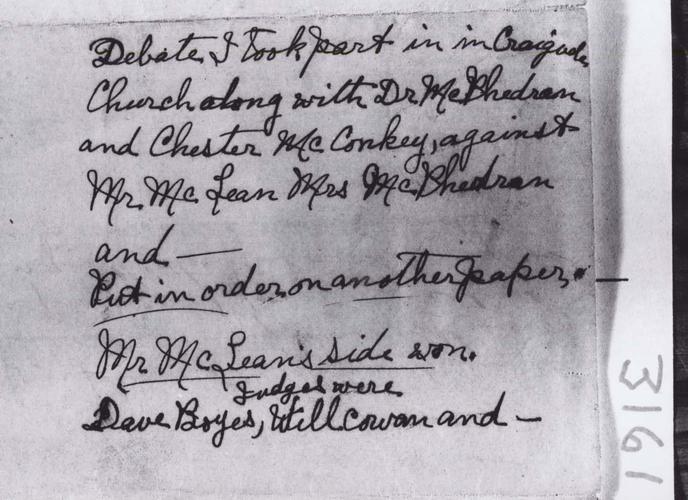 Debate I took part in in Craigvale
Church along with Dr McPhedran
and Chester McConkey, against
Mr. McLean Mrs McPhedran
and —
Put in order on another paper. —
Mr McLean's side won.
Judges were
Dave Boyes, Will Cowan and —
3161